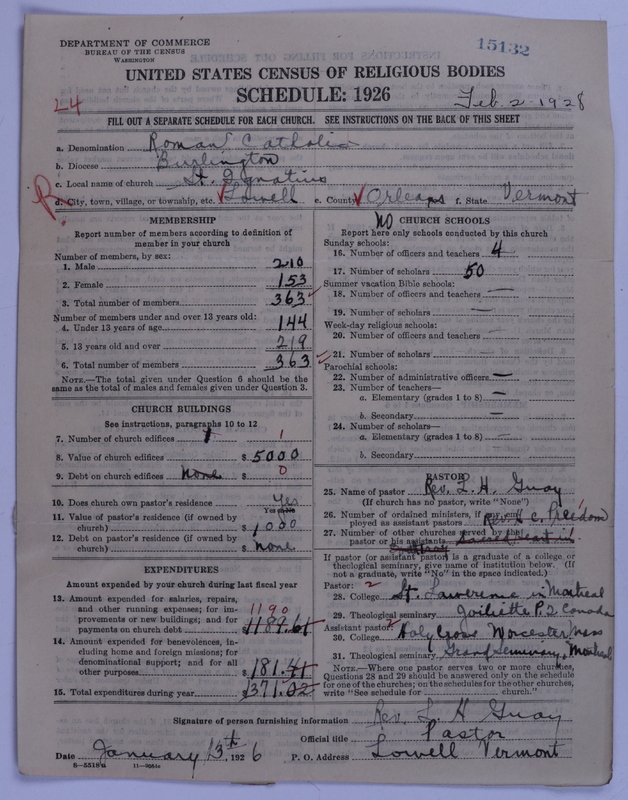 DEPARTMENT OF COMMERCE
BUREAU OF THE CENSUS
WASHINGTON
15132
UNITED STATES CENSUS OF RELIGIOUS BODIES
SCHEDULE: 1926
24
Feb. 2 - 1928
FILL OUT A SEPARATE SCHEDULE FOR EACH CHURCH. SEE INSTRUCTIONS ON THE BACK OF THIS SHEET
a. Denomination Roman Catholic
b. Diocese Burlington
c. Local name of church St. Ignatius
R. d. City, town, village, or township, etc. Lowell e. County Orleans f. State Vermont
MEMBERSHIP
Report number of members according to definition of member in your church
Number of members, by sex:
1. Male 210
2. Female 153
3. Total number of members 363
Number of members under and over 13 years old:
4. Under 13 years of age 144
5. 13 years old and over 219
6. Total number of members 363
NOTE.—The total given under Question 6 should be the same as the total of males and females given under Question 3.
CHURCH BUILDINGS
See instructions, paragraphs 10 to 12
7. Number of church edifices 1 1
8. Value of church edifices $ 5000
9. Debt on church edifices none $ 0
10. Does church own pastor's residence Yes
11. Value of pastor's residence (if owned by church) $ 1000
12. Debt on pastor's residence (if owned by church) $ none
EXPENDITURES
Amount expended by your church during last fiscal year
13. Amount expended for salaries, repairs, and other running expenses; for improvements or new buildings; and for payments on church debt 1190 $ 1189.61
14. Amount expended for benevolences, including home and foreign missions; for denominational support; and for all other purposes $ 181.41
15. Total expenditures during year $ 1371.02
No CHURCH SCHOOLS
Report here only schools conducted by this church
Sunday schools:
16. Number of officers and teachers 4
17. Number of scholars 50
Summer vacation Bible schools:
18. Number of officers and teachers —
19. Number of scholars —
Week-day religious schools:
20. Number of officers and teachers —
21. Number of scholars —
Parochial schools:
22. Number of administrative officers —
23. Number of teachers—
a. Elementary (grades 1 to 8) —
b. Secondary —
24. Number of scholars—
a. Elementary (grades 1 to 8) —
b. Secondary —
PASTOR
25. Name of pastor Rev. L. H. Guay
(If church has no pastor, write "None")
26. Number of ordained ministers, if any, employed as assistant pastors Rev. H C. Preedom
27. Number of other churches served by the pastor or his assistants Sacred Heart
If pastor (or assistant pastor) is a graduate of a college or theological seminary, give name of institution below. (If not a graduate, write "No" in the space indicated.)
Pastor: 2
28. College St. Lawrence in Montreal
29. Theological seminary Joiliette P.Q Canada
Assistant pastor: 2
30. College Holy Cross Worcester Mass
31. Theological seminary Grand Seminary, Montreal
NOTE.—Where one pastor serves two or more churches, Questions 28 and 29 should be answered only on the schedule for one of the churches; on the schedules for the other churches, write "See schedule for church."
Signature of person furnishing information Rev. L. H Guay
Official title Pastor
Date January 13th, 1926 P. O. Address Lowell Vermont
8-5518a